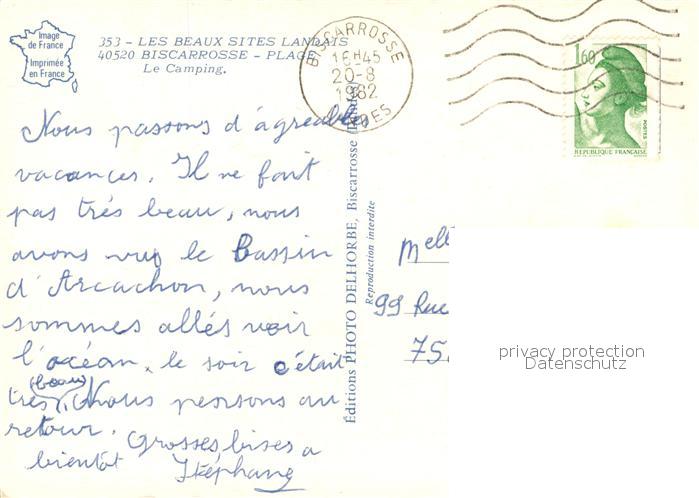 Image
de France
Imprimée
en France
353 - LES BEAUX SITES LANDAIS
40520 BISCARROSSE - PLAGE
Le Camping.
BISCARROSSE
16H45
20-8
1982
LANDES
1,60
POSTES
REPUBLIQUE FRANÇAISE
Nous passons d'agréables
vacances. Il ne fait
pas très beau, nous
avons vu le Bassin
d'Arcachon, nous
sommes allés voir
l'océan, le soir c'était
(beau)
très, Nous pensons au
retour. Grosses bises a
bientôt Stéphane
Éditions PHOTO DELHORBE, Biscarrosse (Landes)
Reproduction interdite
Mell
99 Rue
75
privacy protection
Datenschutz